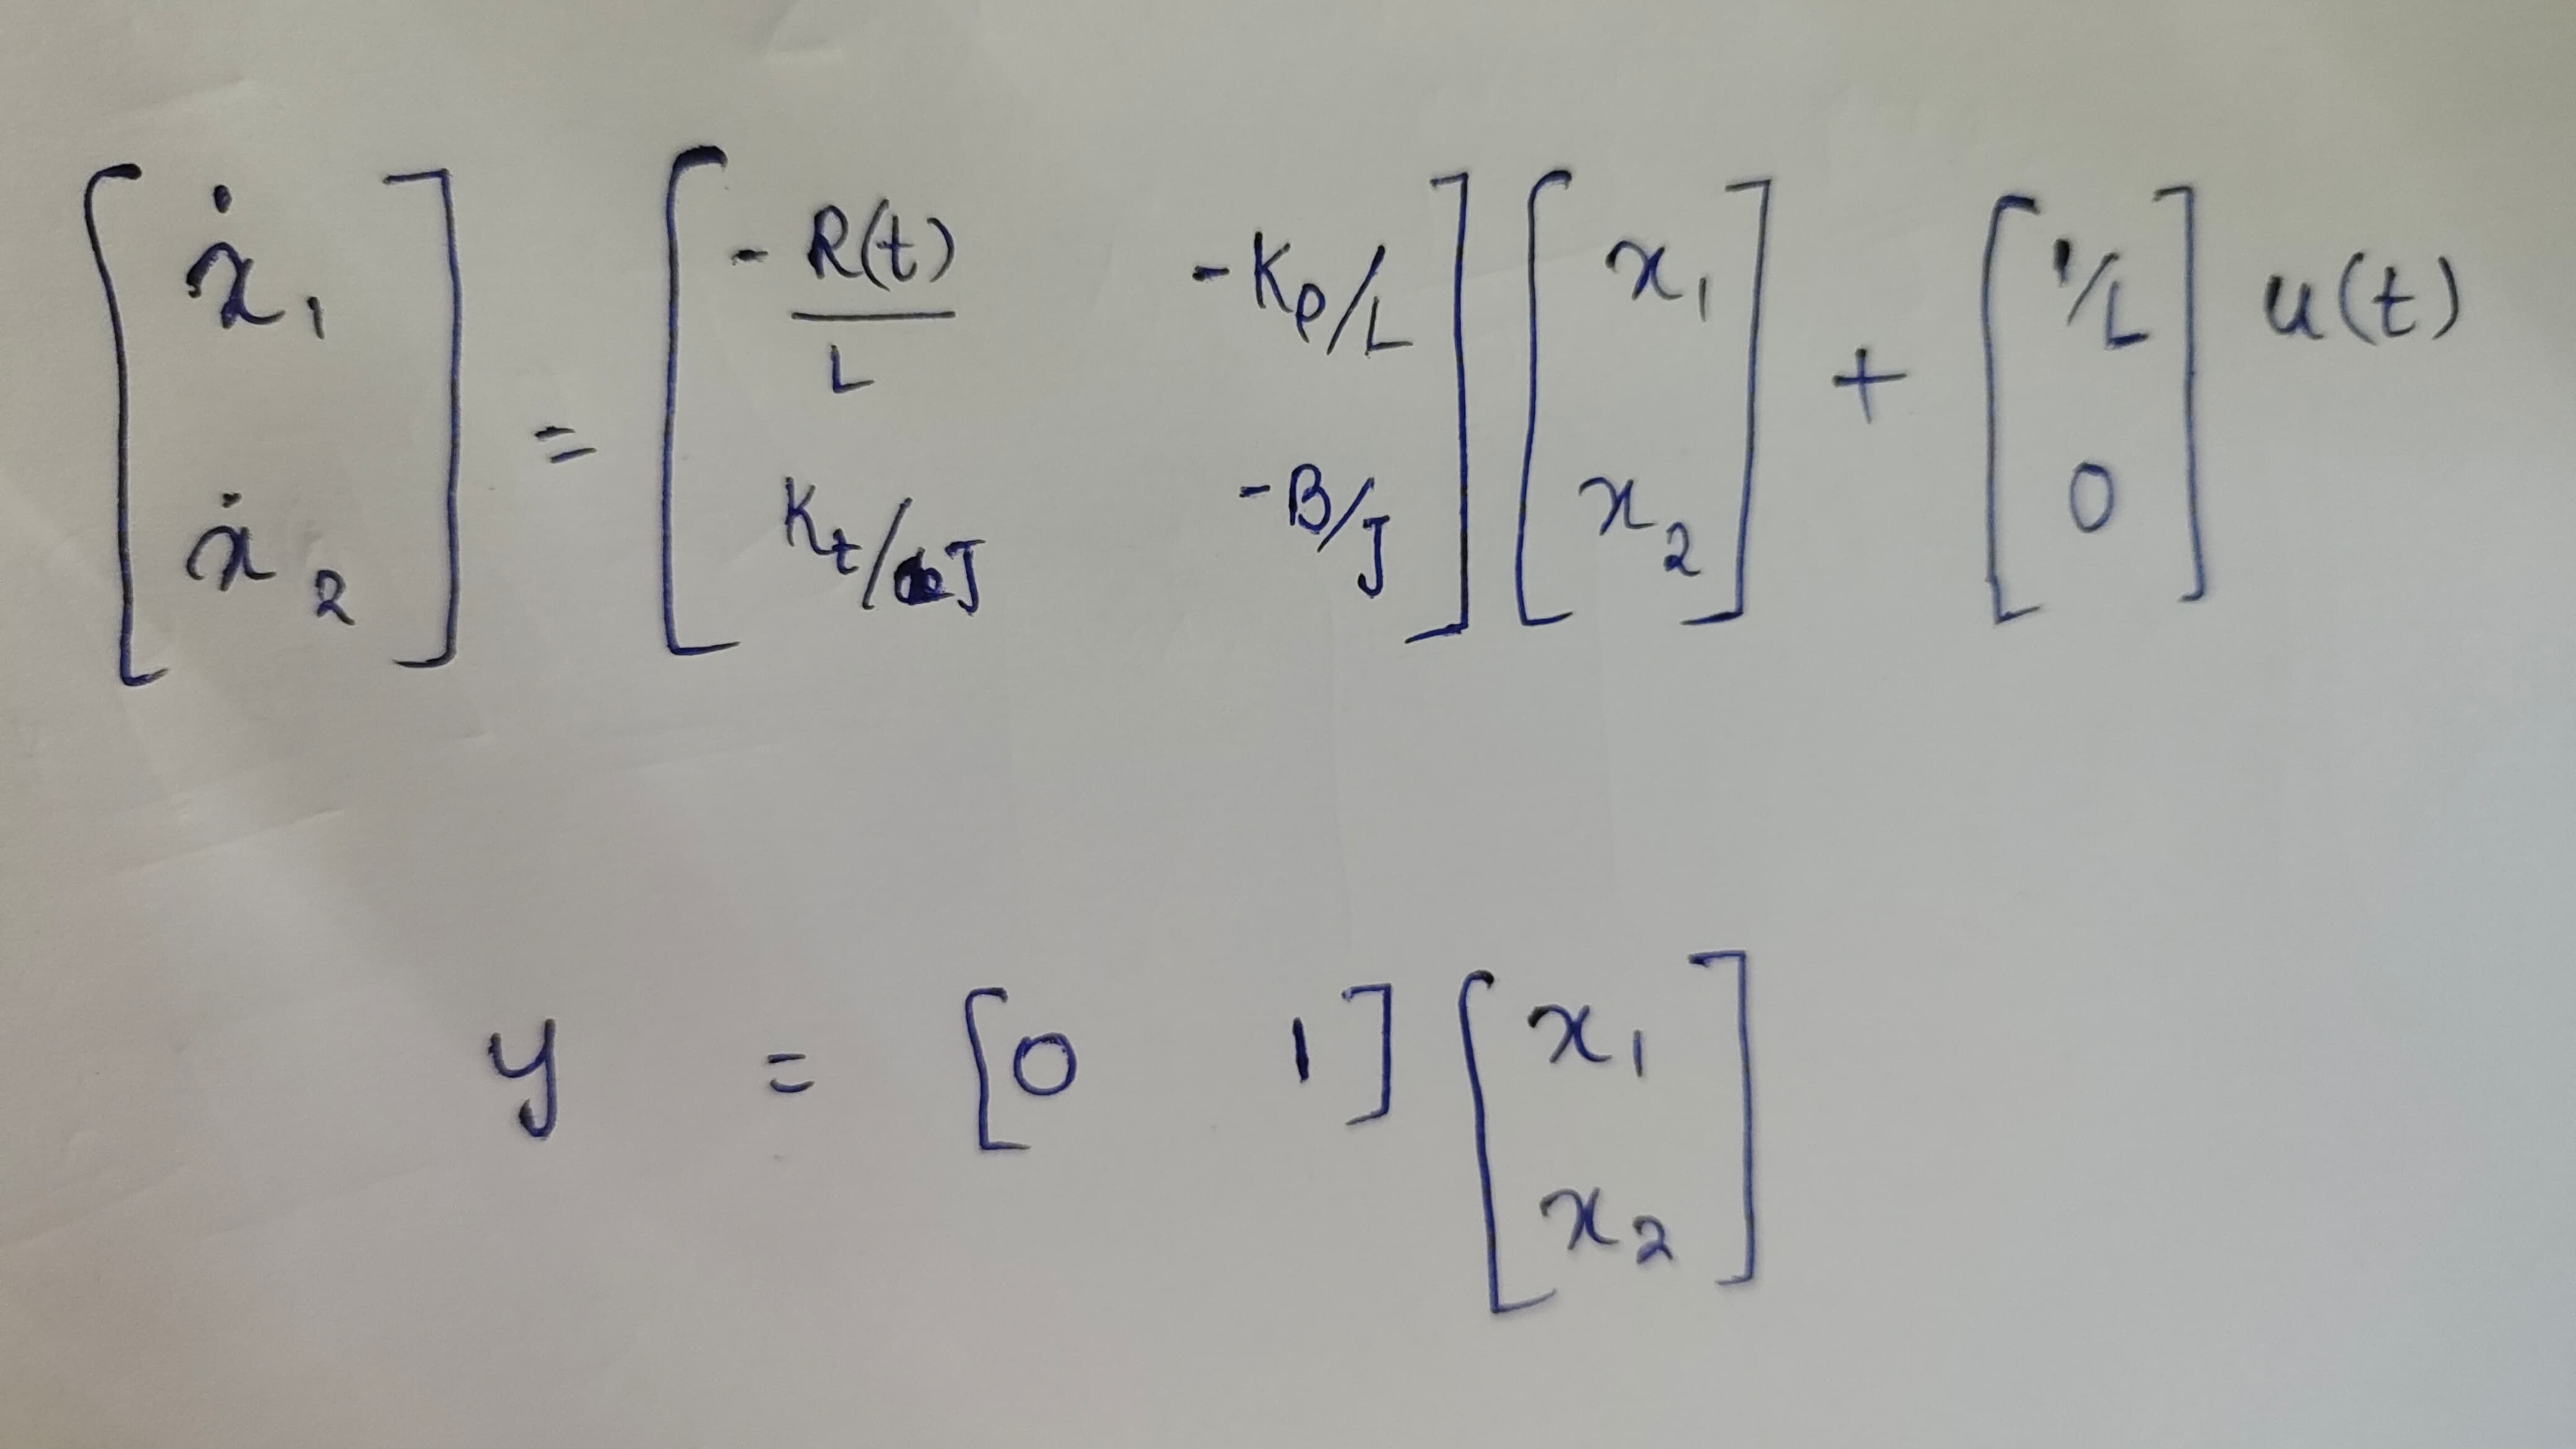 [ẋ₁ ẋ₂] = [-R(t)/L -Kₑ/L Kₜ/J -B/J] [x₁ x₂] + [1/L 0] u(t)
y = [0 1] [x₁ x₂]